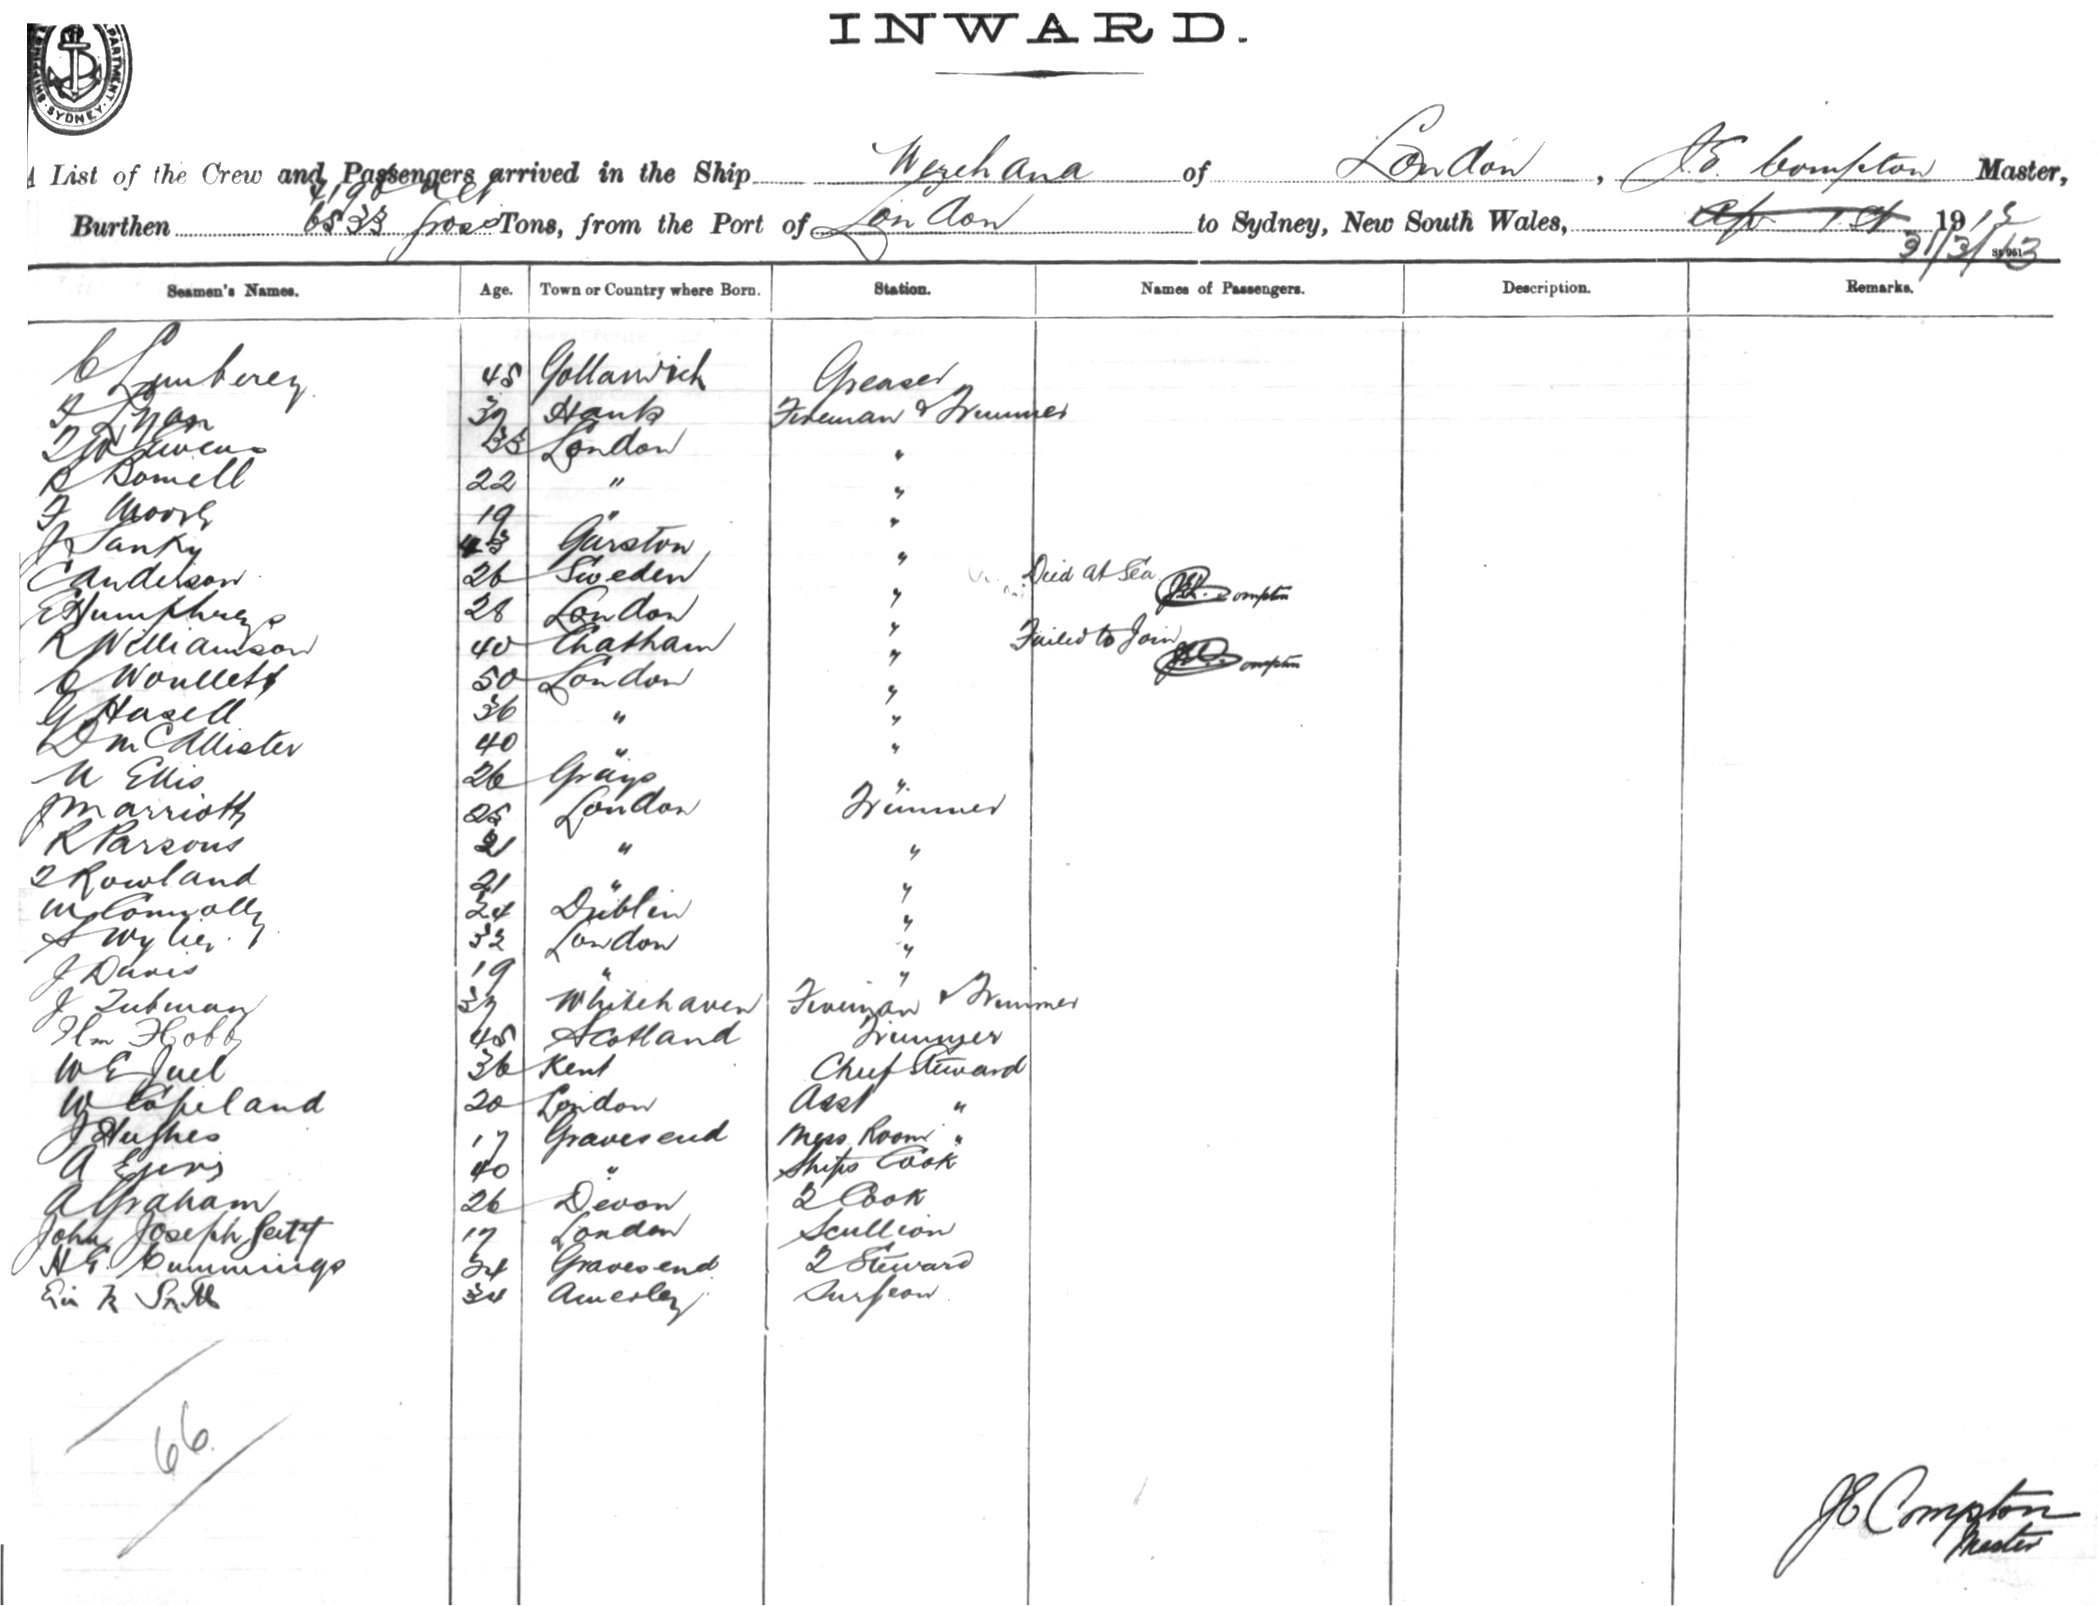 INWARD.
SHIPPING DEPARTMENT. SYDNEY
A List of the Crew and Passengers arrived in the Ship Werehana of London, J.E. Compton Master,
4190 net
Burthen 6533 gross Tons, from the Port of London to Sydney, New South Wales, Apr 1st 1913
31/3/13
Seamen's Names. Age. Town or Country where Born. Station. Names of Passengers. Description. Remarks.
C 45 Greaser
Ryan 37 Hants Fireman & Trimmer
33 London "
R 22 " "
F 19 " "
J Sanky 43 Garston "
C Anderson 26 Sweden " Died at Sea JE Compton
E Humphreys 28 London "
R Williamson 40 Chatham " Failed to Join JE Compton
C Woullett 50 London "
G Hasell 36 " "
D McAllister 40 " "
W Ellis 26 Grays "
J Marriott 25 London Trimmer
R Parsons 21 " "
Rowland 21 " "
W Connolly 24 Dublin "
S Wyher 32 London "
J Davis 19 " "
J Tubman 37 Whitehaven Fireman & Trimmer
Wm Hobb 45 Scotland Trimmer
W E Juel 36 Kent Chief Steward
W Copeland 20 London Asst "
J Hughes 17 Gravesend Mess Room "
A 40 " Ships Cook
A Graham 26 Devon 2 Cook
John Joseph 17 London Scullion
H E Cummings 24 Gravesend 2 Steward
Smith 34 Amerley Surgeon
66
JE Compton
Master